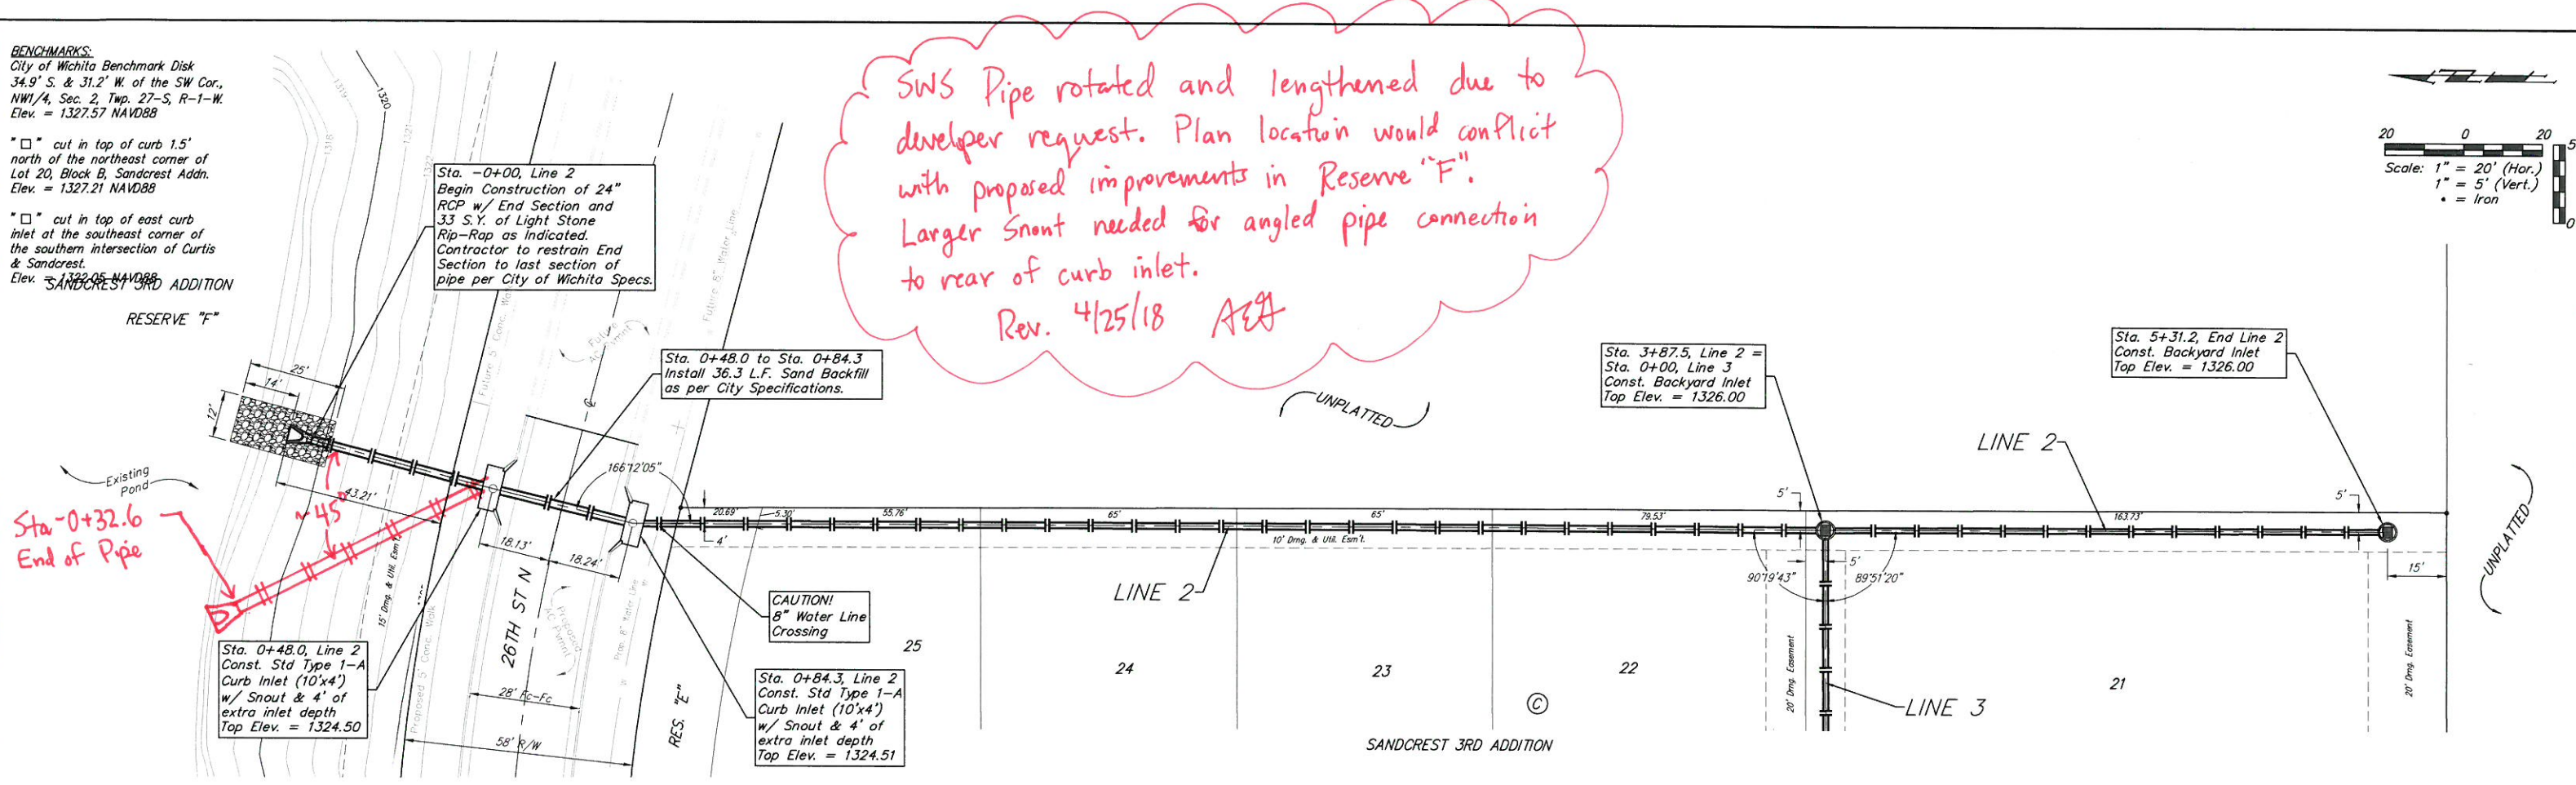 BENCHMARKS:
City of Wichita Benchmark Disk
34.9' S. & 31.2' W. of the SW Cor.,
NW1/4, Sec. 2, Twp. 27-S, R-1-W.
Elev. = 1327.57 NAVD88
"□" cut in top of curb 1.5'
north of the northeast corner of
Lot 20, Block B, Sandcrest Addn.
Elev. = 1327.21 NAVD88
"□" cut in top of east curb
inlet at the southeast corner of
the southern intersection of Curtis
& Sandcrest.
Elev. = 1322.05 NAVD88
SANDCREST 3RD ADDITION
RESERVE "F"
1318
1319
1320
1321
1322
Sta. -0+00, Line 2
Begin Construction of 24"
RCP w/ End Section and
33 S.Y. of Light Stone
Rip-Rap as Indicated.
Contractor to restrain End
Section to last section of
pipe per City of Wichita Specs.
Future 8" Water Line
SWS Pipe rotated and lengthened due to
develper request. Plan location would conflict
with proposed improvements in Reserve "F".
Larger Snout needed for angled pipe connection
to rear of curb inlet.
Rev. 4/25/18 AEG
20 0 20
5
0
Scale: 1" = 20' (Hor.)
1" = 5' (Vert.)
• = Iron
Future 5' Conc.
Future
AC Pvmnt
Sta. 0+48.0 to Sta. 0+84.3
Install 36.3 L.F. Sand Backfill
as per City Specifications.
UNPLATTED
Sta. 3+87.5, Line 2 =
Sta. 0+00, Line 3
Const. Backyard Inlet
Top Elev. = 1326.00
Sta. 5+31.2, End Line 2
Const. Backyard Inlet
Top Elev. = 1326.00
LINE 2
25'
14'
12'
Existing
Pond
43.21'
~45°
Sta -0+32.6
End of Pipe
166°12'05"
20.69'
5.30'
55.76'
65'
65'
79.53'
163.73'
5'
5'
4'
10' Drng. & Util. Esm't.
18.13'
18.24'
LINE 2
90°19'43"
89°51'20"
5'
15'
UNPLATTED
15' Drng. & Util. Esm't.
Proposed 5' Conc. Walk
26TH ST N
Proposed
AC Pvmnt
Prop. 8" Water Line
CAUTION!
8" Water Line
Crossing
Sta. 0+48.0, Line 2
Const. Std Type 1-A
Curb Inlet (10'x4')
w/ Snout & 4' of
extra inlet depth
Top Elev. = 1324.50
28' Fc-Fc
58' R/W
RES. "E"
Sta. 0+84.3, Line 2
Const. Std Type 1-A
Curb Inlet (10'x4')
w/ Snout & 4' of
extra inlet depth
Top Elev. = 1324.51
25
24
23
22
21
20' Drng. Easement
20' Drng. Easement
LINE 3
C
SANDCREST 3RD ADDITION